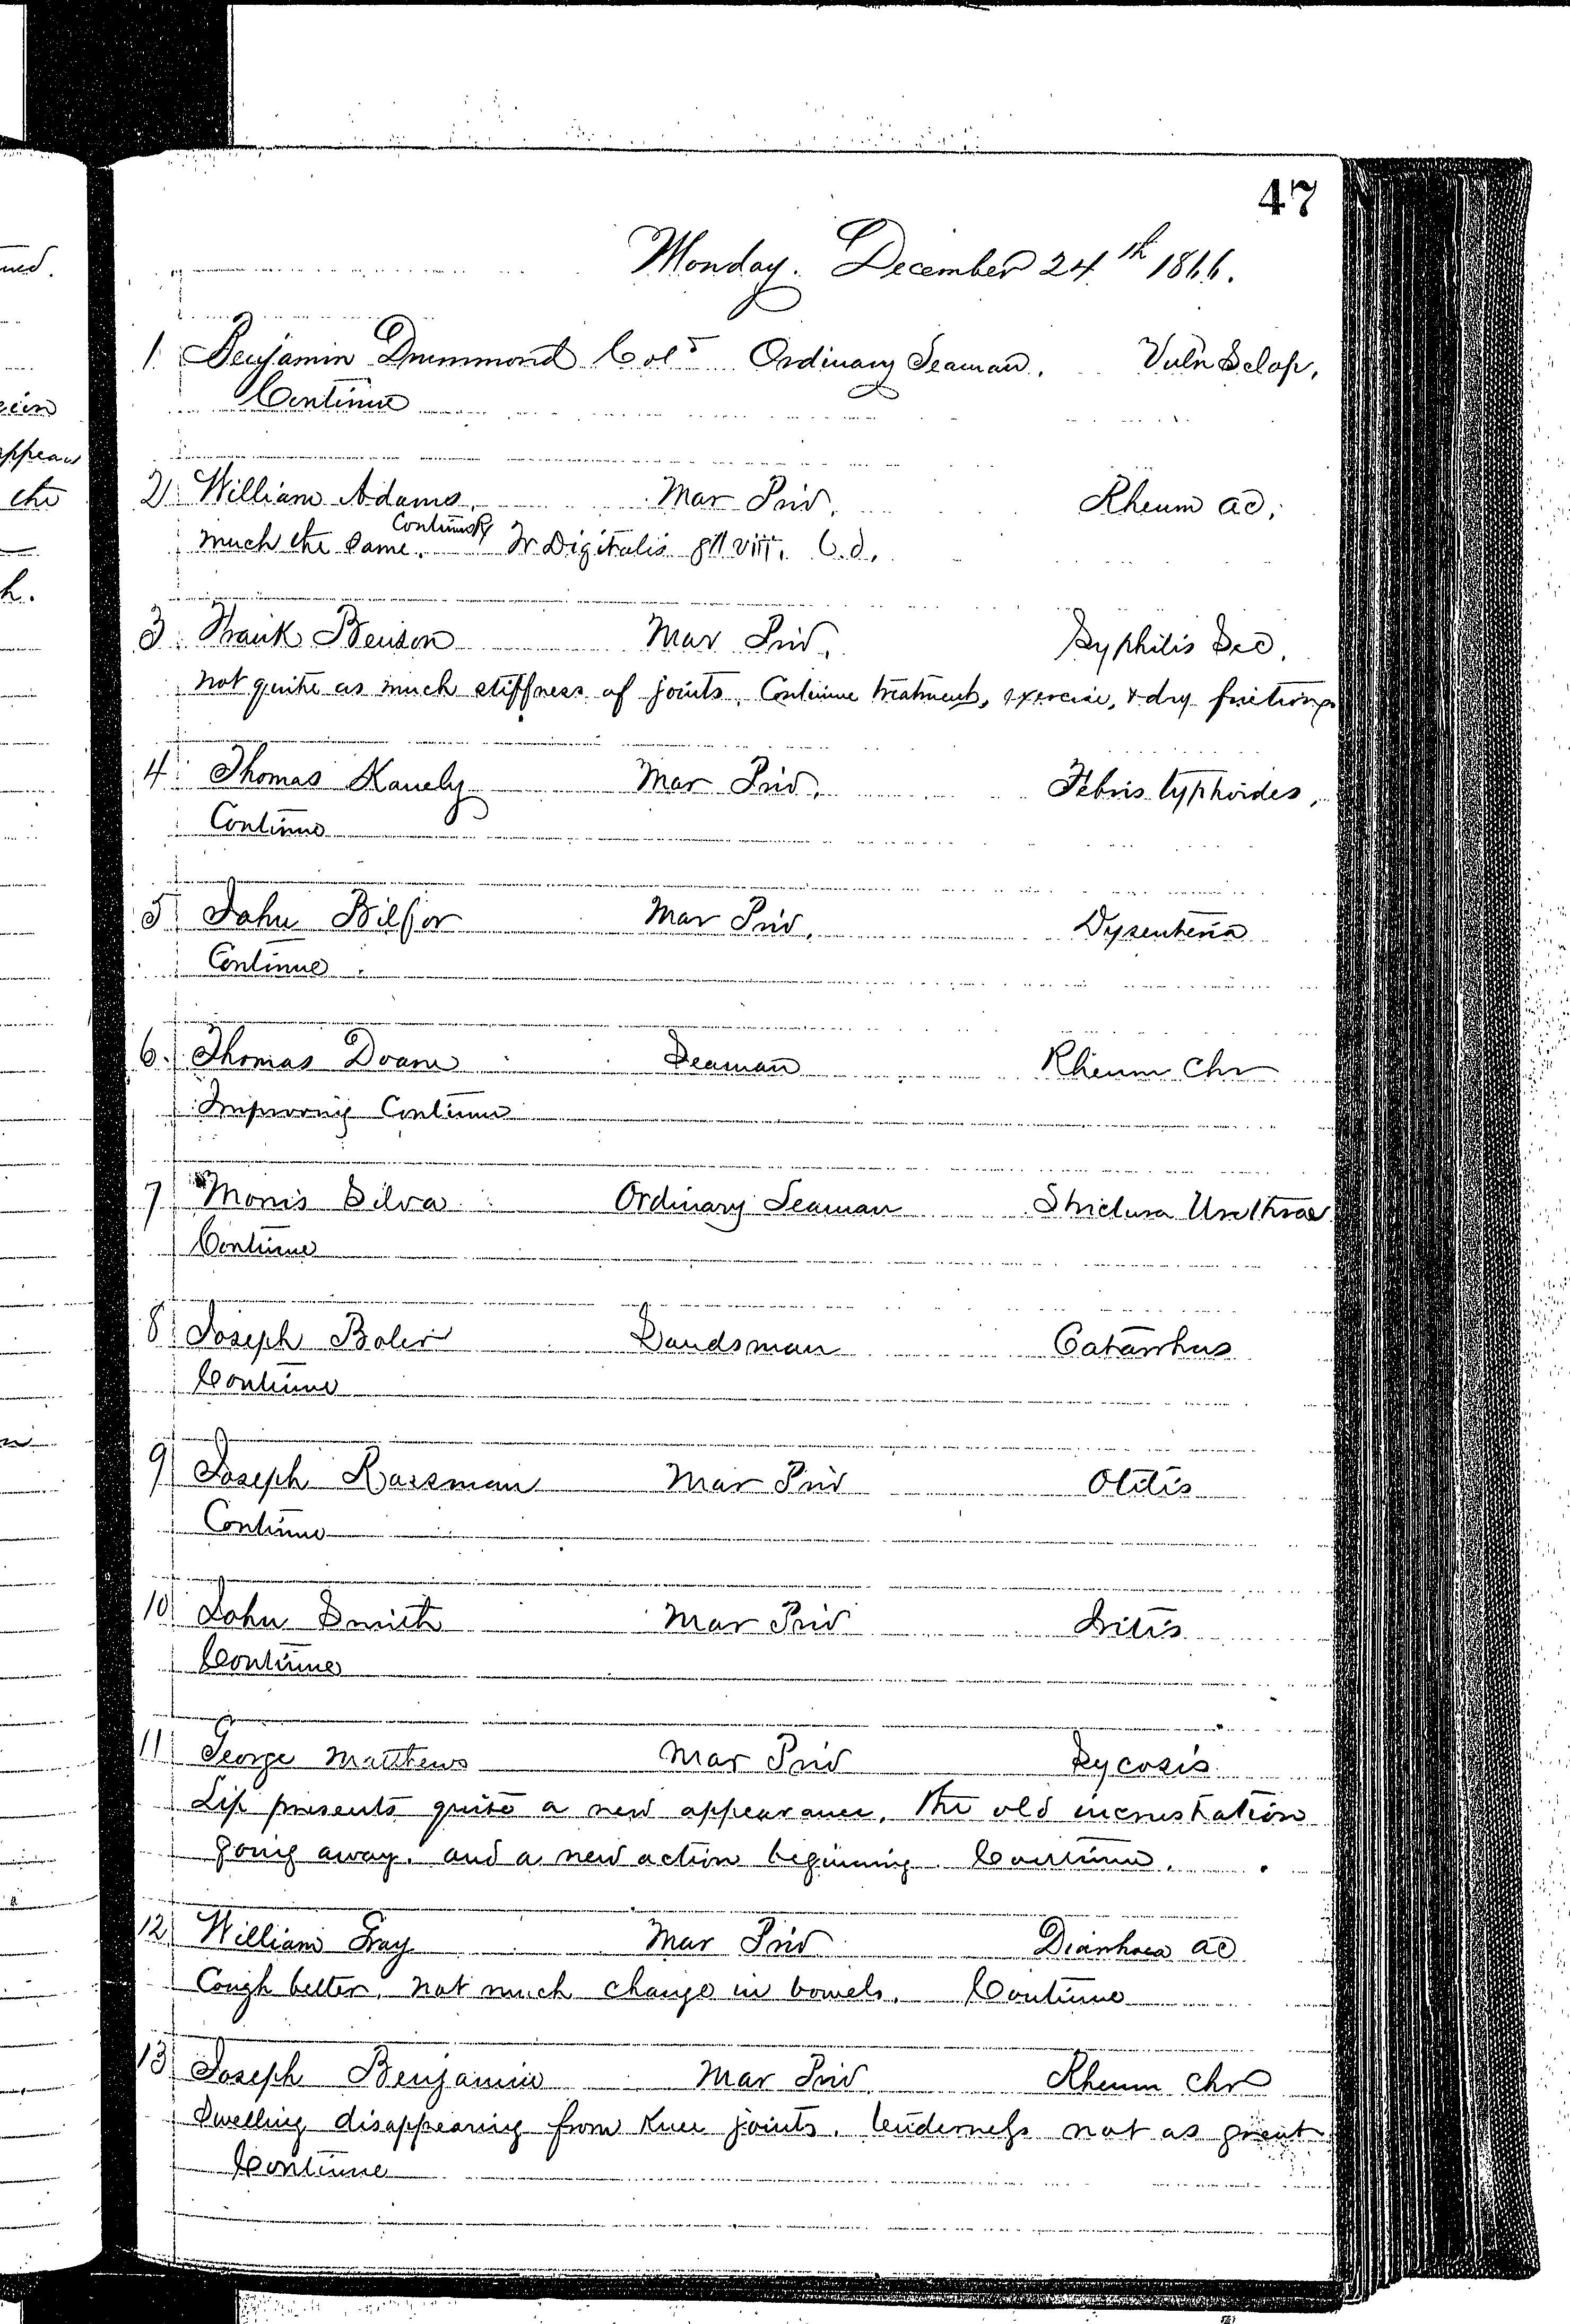 47
Monday. December 24th 1866.
1 Benjamin Drummond Cold Ordinary Seaman. Vuln Sclop.
Continue
2 William Adams. Mar Priv. Rheum ac.
much the same. Continue Rx Tr Digitalis gtt viii. t.d.
3 Frank Benson Mar Priv. Syphilis Sec.
not quite as much stiffness of joints. Continue treatment, exercise, & dry frictions
4 Thomas Kanely Mar Priv. Febris typhoides.
Continue
5 John Mar Priv. Dysenteria
Continue.
6. Thomas Doane Seaman Rheum Chr
Improving Continue
7 Morris Silva Ordinary Seaman Strictura Urethrae
Continue
8 Joseph Boler Landsman Catarrhus
Continue
9 Joseph Rassman Mar Priv Otitis
Continue
10 John Smith Mar Priv Iritis
Continue
11 George Matthews Mar Priv Sycosis
Lip presents quite a new appearance. The old incrustation
going away. and a new action beginning. Continue.
12 William Gray Mar Priv Diarrhoea ac
Cough better. not much change in bowels. Continue
13 Joseph Benjamin Mar Priv. Rheum Chr
Swelling disappearing from knee joints. tenderness not as great
Continue